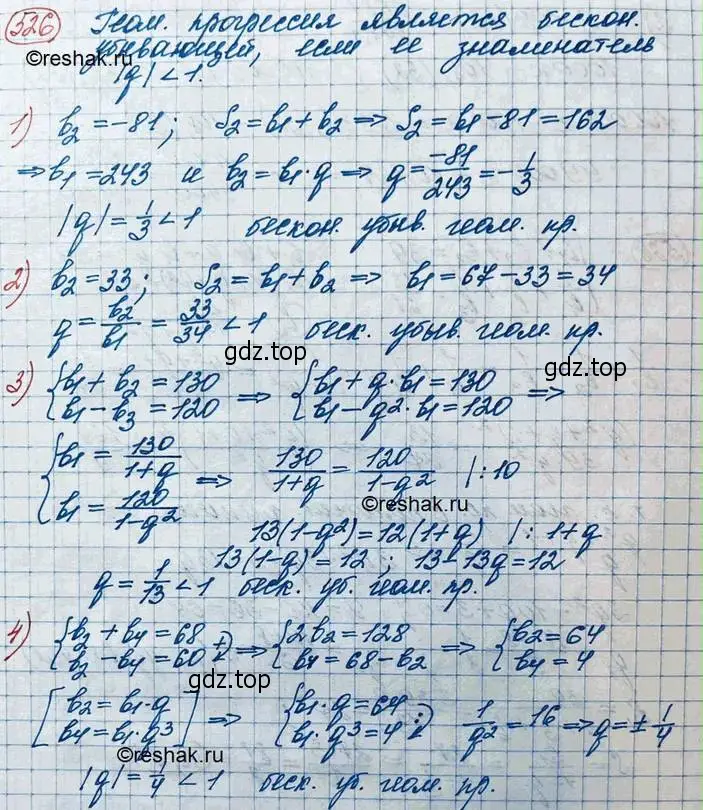 526 Геом. прогрессия является бескон.
убывающей, если ее знаменатель
©reshak.ru
|q| < 1.
1) b₂ = -81; S₂ = b₁ + b₂ ⇒ S₂ = b₁ - 81 = 162
⇒ b₁ = 243 и b₂ = b₁·q ⇒ q = -81/243 = -1/3
|q| = 1/3 < 1 бескон. убыв. геом. пр.
2) b₂ = 33; S₂ = b₁ + b₂ ⇒ b₁ = 67 - 33 = 34
q = b₂/b₁ = 33/34 < 1 беск. убыв. геом. пр.
gdz.top
gdz.top
3) { b₁ + b₂ = 130 ⇒ { b₁ + q·b₁ = 130 ⇒
b₁ - b₃ = 120 b₁ - q²·b₁ = 120
{ b₁ = 130/(1+q) ⇒ 130/(1+q) = 120/(1-q²) |:10
b₁ = 120/(1-q²)
©reshak.ru
13(1-q²) = 12(1+q) |: 1+q
13(1-q) = 12; 13 - 13q = 12
q = 1/13 < 1 беск. уб. геом. пр.
4) { b₂ + b₄ = 68 ⇒ { 2b₂ = 128 ⇒ { b₂ = 64
b₂ - b₄ = 60 b₄ = 68 - b₂ b₄ = 4
gdz.top
gdz.top
[ b₂ = b₁·q ] ⇒ { b₁·q = 64 :) 1/q² = 16 ⇒ q = ± 1/4
b₄ = b₁·q³ b₁·q³ = 4
©reshak.ru
|q| = 1/4 < 1 беск. уб. геом. пр.